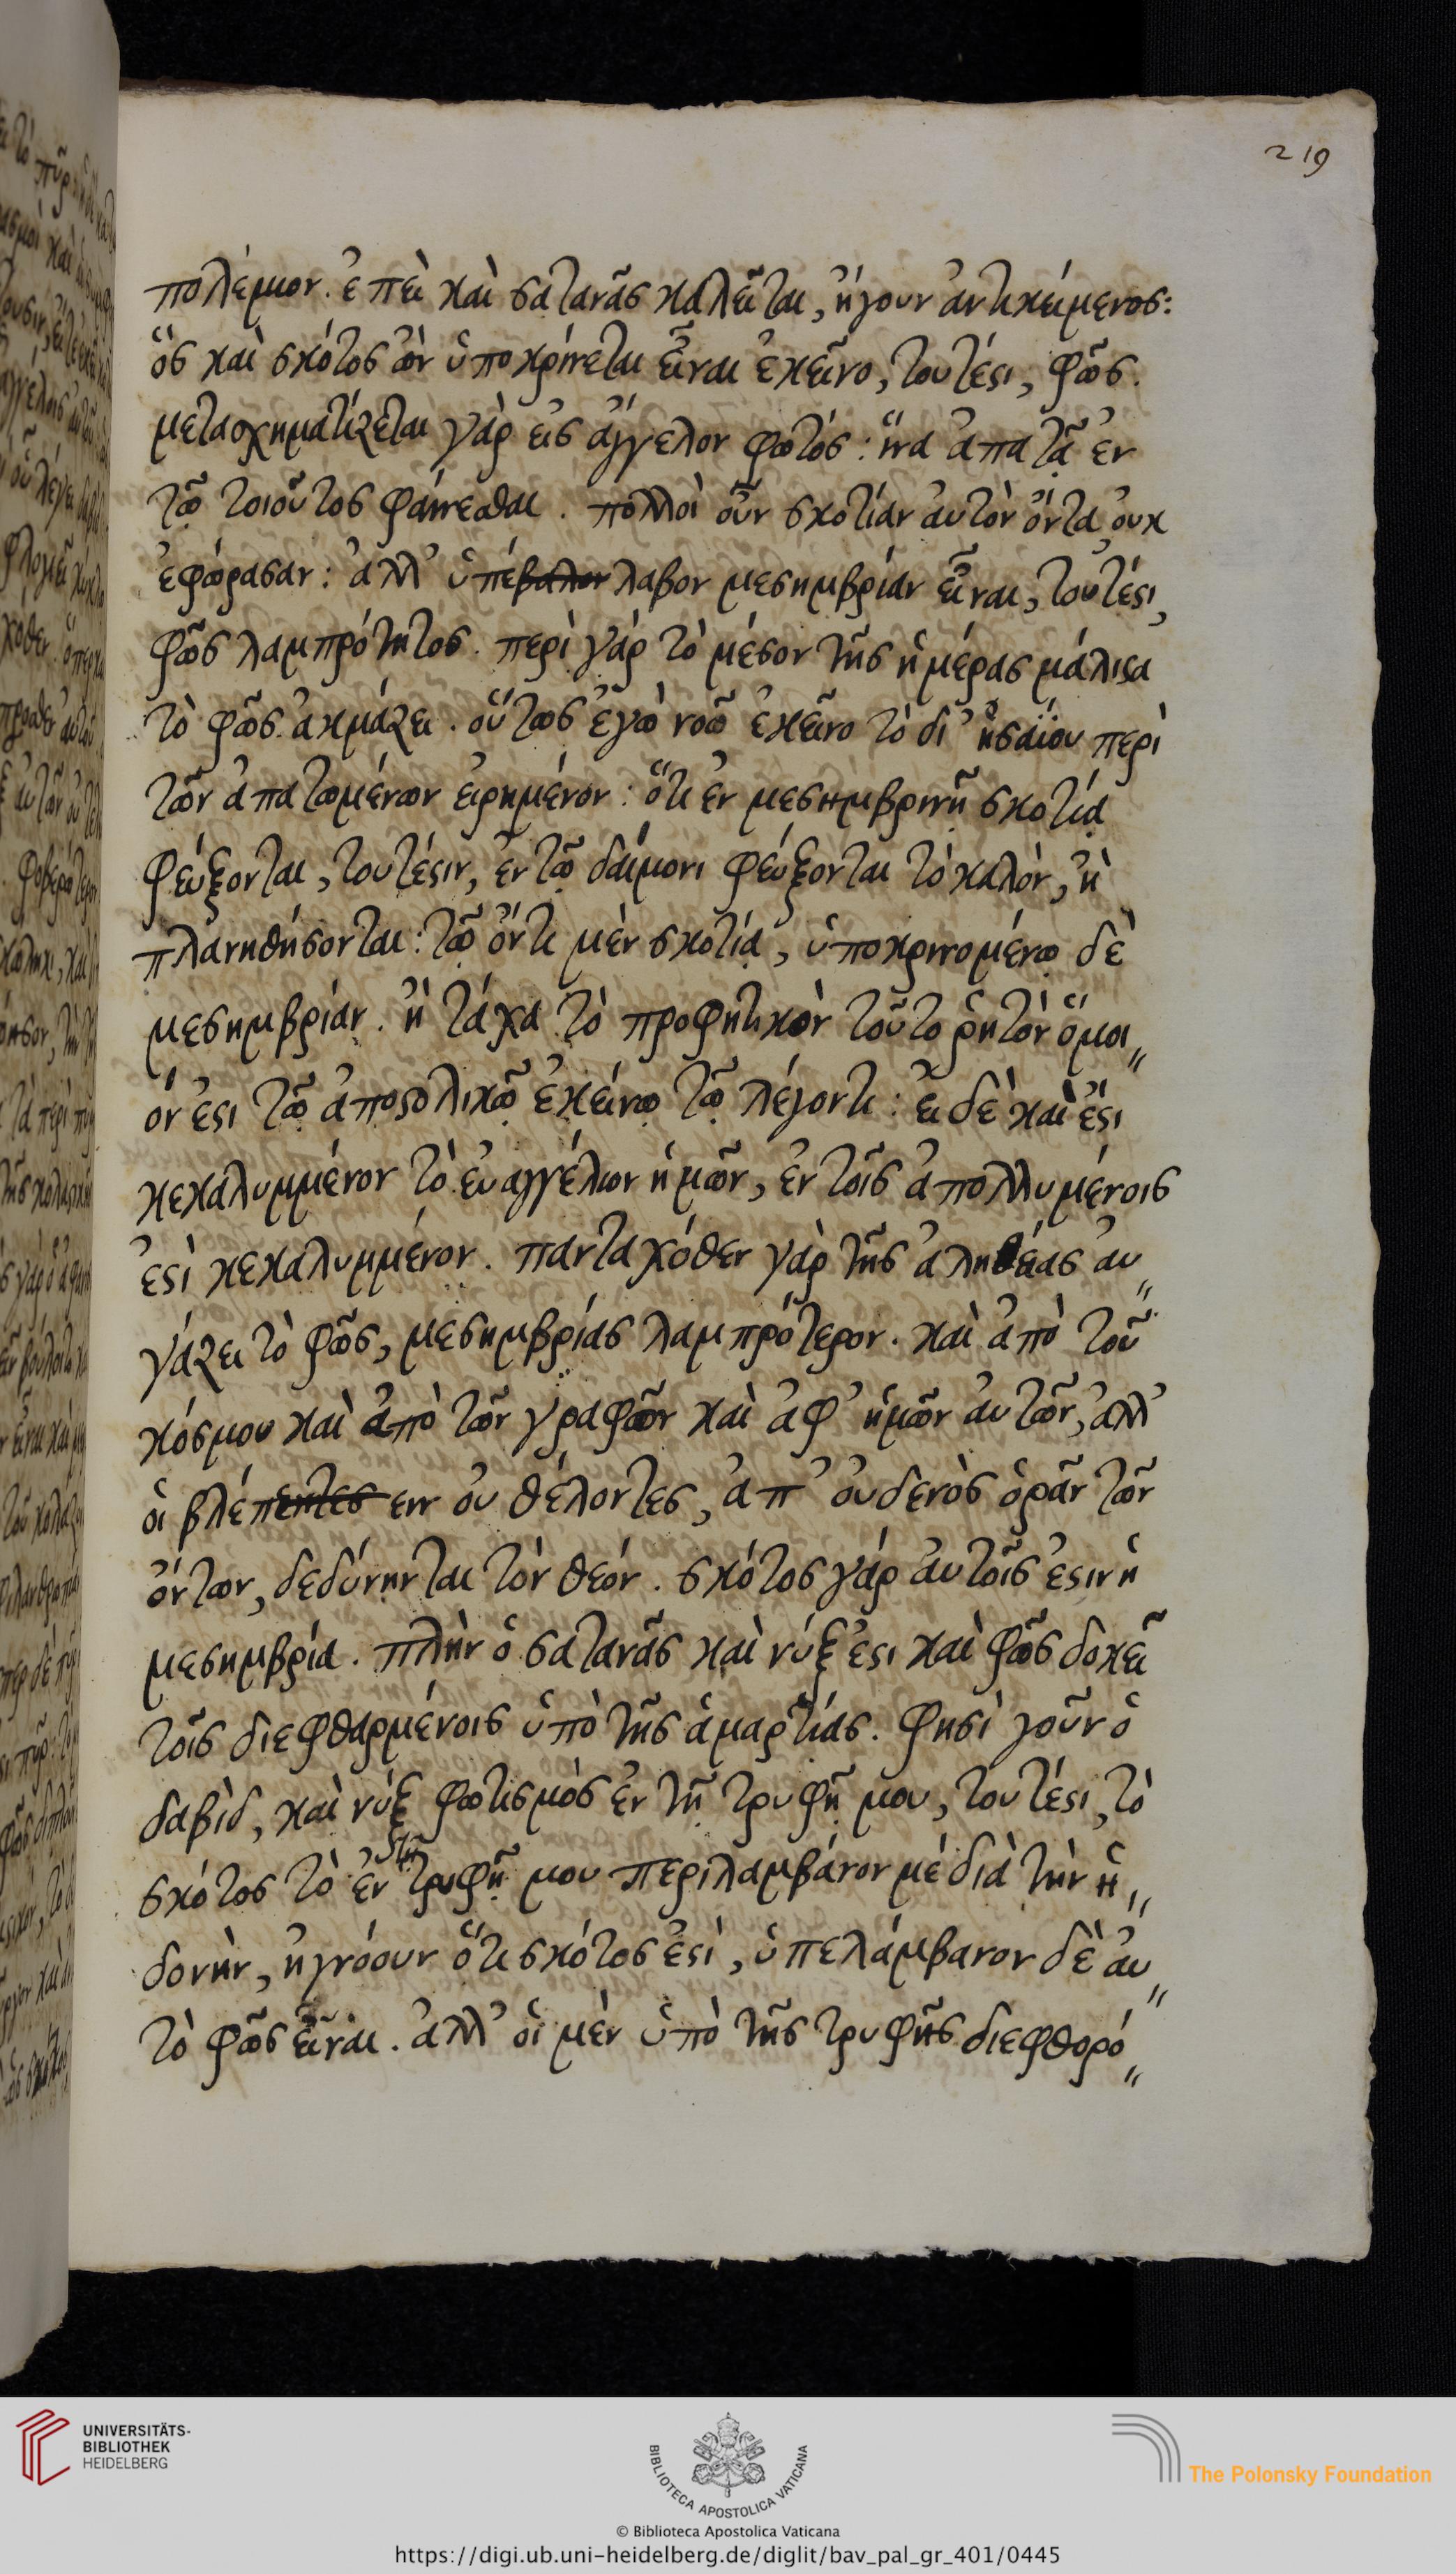 219
πολέμιον. ἐπεὶ καὶ σατανᾶς καλεῖται, ἤγουν ἀντικείμενος:
ὃς καὶ σκότος ὢν ὑποκρίνεται εἶναι ἐκεῖνο, τουτέστι, φῶς.
μετασχηματίζεται γὰρ εἰς ἄγγελον φωτός: ἵνα ἀπατᾷ ἐν
τῷ τοιοῦτος φαίνεσθαι. πολλοὶ οὖν σκοτίαν αὐτὸν ὄντα οὐκ
ἐφώρασαν: ἀλλ' ὑπέβαλον λαβον μεσημβρίαν εἶναι, τουτέστι,
φῶς λαμπρότητος. περὶ γάρ τὸ μέσον τῆς ἡμέρας μάλιστα
τὸ φῶς ἀκμάζει. οὕτως ἐγὼ νοῶ ἐκεῖνο τὸ δι' ἡσαΐου περὶ
τῶν ἀπατωμένων εἰρημένον: ὅτι ἐν μεσημβρινῇ σκοτίᾳ
φεύξονται, τουτέστιν, ἐν τῷ δαίμονι φεύξονται τὸ καλὸν, ἢ
πλανηθήσονται: τῷ ὄντι μὲν σκοτίᾳ, ὑποκρινομένῳ δὲ
μεσημβρίαν. ἢ τάχα τὸ προφητικὸν τοῦτο ῥητὸν ὅμοι
όν ἐστι τῷ ἀποστολικῷ ἐκείνῳ τῷ λέγοντι: εἰ δὲ καὶ ἔστι
κεκαλυμμένον τὸ εὐαγγέλιον ἡμῶν, ἐν τοῖς ἀπολλυμένοις
ἐστὶ κεκαλυμμένον. πανταχόθεν γὰρ τῆς ἀληθείας αὐ
γάζει τὸ φῶς, μεσημβρίας λαμπρότερον. καὶ ἀπὸ τοῦ
κόσμου καὶ ἀπὸ τῶν γραφῶν καὶ ἀφ' ἡμῶν αὐτῶν, ἀλλ'
οἱ βλέπεντες ειν οὐ θέλοντες, ἀπ' οὐδενὸς ὁρᾶν τῶν
ὄντων, δεδύνηνται τὸν θεόν. σκότος γάρ αὐτοῖς ἐστιν ἡ
μεσημβρία. πλὴν ὁ σατανᾶς καὶ νύξ ἐστι καὶ φῶς δοκεῖ
τοῖς διεφθαρμένοις ὑπὸ τῆς ἁμαρτίας. φησὶ γοῦν ὁ
δαβὶδ, καὶ νὺξ φωτισμὸς ἐν τῇ τρυφῇ μου, τουτέστι, τὸ
σκότος τὸ ἐν τῇ τρυφῇ μου περιλαμβάνον μέ διὰ τὴν ἡ
δονὴν, ἠγνόουν ὅτι σκότος ἐστὶ, ὑπελάμβανον δὲ αὐ
τὸ φῶς εἶναι. ἀλλ' οἱ μὲν ὑπὸ τῆς τρυφῆς διεφθορό
UNIVERSITÄTS-
BIBLIOTHEK
HEIDELBERG
BIBLIOTECA APOSTOLICA VATICANA
The Polonsky Foundation
© Biblioteca Apostolica Vaticana
https://digi.ub.uni-heidelberg.de/diglit/bav_pal_gr_401/0445